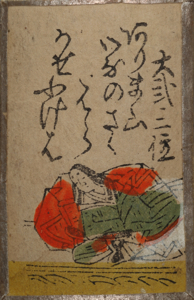 大弐三位
ありま山
ゐなのさゝ
はら
かせふけは